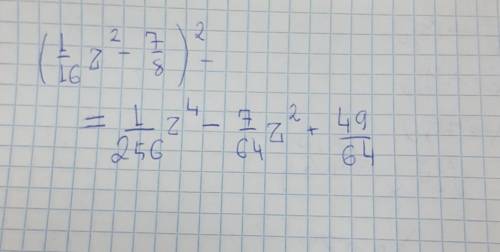 (1/16 z² - 7/8)² -
= 1/256 z⁴ - 7/64 z² + 49/64